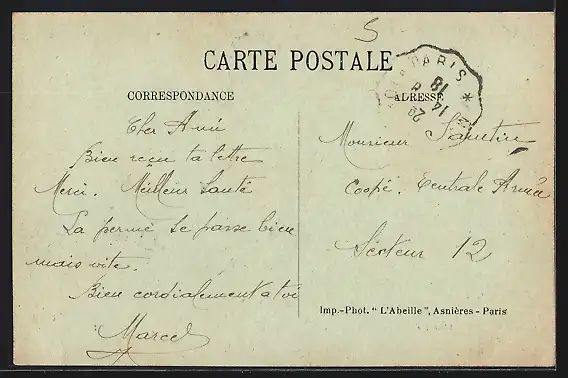 5
CARTE POSTALE
PARIS *
18
14
29
CORRESPONDANCE
ADRESSE
Cher Ami
Bien reçu ta lettre
Merci. Meilleur Santé
La perme se passe bien
mais vite.
Bien cordialement a toi
Marcel
Monsieur
Coopé. Centrale Armée
Secteur 12
Imp.-Phot. "L'Abeille", Asnières - Paris